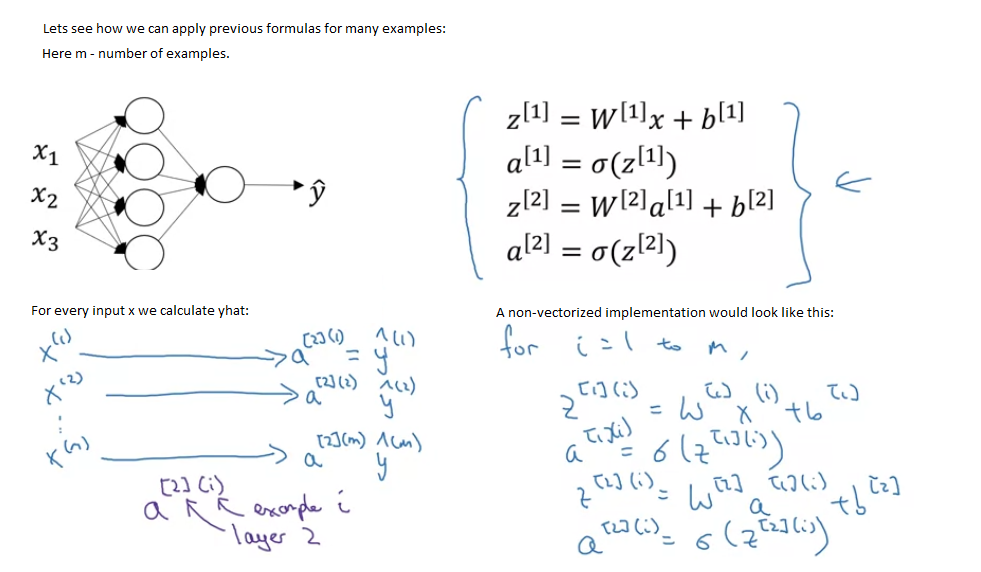 Lets see how we can apply previous formulas for many examples:
Here m - number of examples.
x₁
x₂
x₃
ŷ
z[1] = W[1]x + b[1]
a[1] = σ(z[1])
z[2] = W[2]a[1] + b[2]
a[2] = σ(z[2])
←
For every input x we calculate yhat:
x(1) → a[2](1) = ŷ(1)
x(2) → a[2](2) ŷ(2)
⋮
x(m) → a[2](m) ŷ(m)
a[2](i)
example i
layer 2
A non-vectorized implementation would look like this:
for i = 1 to m,
z[1](i) = W[1] x(i) + b[1]
a[1](i) = σ(z[1](i))
z[2](i) = W[2] a[1](i) + b[2]
a[2](i) = σ(z[2](i))